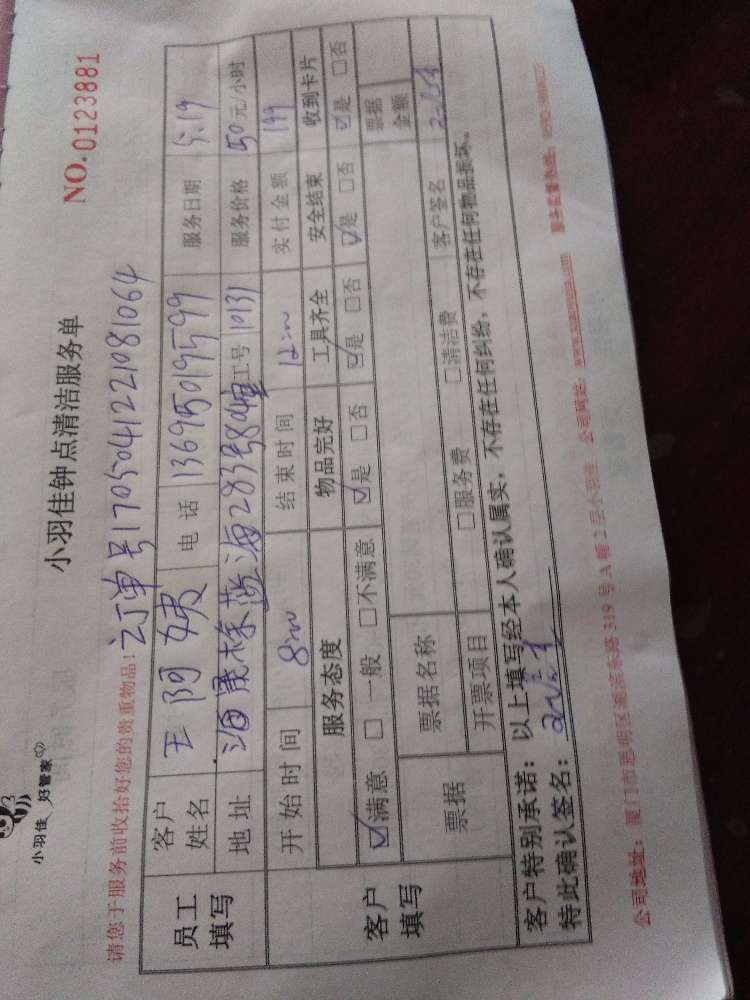 小羽佳 好管家
小羽佳钟点清洁服务单
NO.0123881
请您于服务前收拾好您的贵重物品！订单号1705041221081064
员工填写 客户姓名 王阿姨 电话 13695019599 服务日期 5.19
地址 283号804 工号 10131 服务价格 50元/小时
客户填写 开始时间 8:00 结束时间 12:00 实付金额 199
服务态度 物品完好 工具齐全 安全结束 收到卡片
☑满意 □一般 □不满意 ☑是 □否 ☑是 □否 ☑是 □否 ☑是 □否
票据 票据名称 票据金额
开票项目 □服务费 □清洁费 客户签名
客户特别承诺：以上填写经本人确认属实，不存在任何纠纷，不存在任何物品损坏。
特此确认签名：
公司地址：厦门市思明区湖滨东路319号A幢2层小羽佳 公司网站： 服务监督热线：